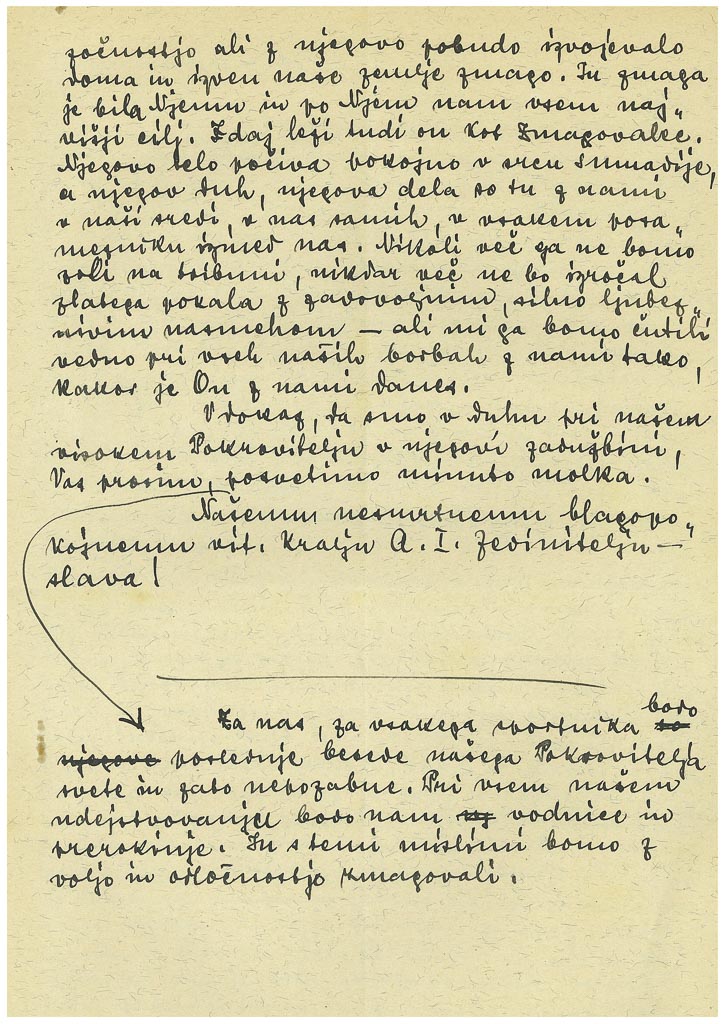 zočnostjo ali z njegovo pobudo izvojevalo
doma in izven naše zemlje zmago. In zmaga
je bila Njemu in po Njem nam vsem naj„
višji cilj. Zdaj leži tudi on kot Zmagovalec.
Njegovo telo počiva pokojno v srcu Šumadije,
a njegov duh, njegova dela so tu z nami
v naši sredi, v nas samih, v vsakem posa„
mezniku izmed nas. Nikoli več ga ne bomo
na tribuni, nikdar več ne bo izročal
zlatega pokala z zadovoljnim, silno ljubez„
nivim nasmehom — ali mi ga bomo čutili
vedno pri vseh naših borbah z nami tako,
kakor je On z nami danes.
V dokaz, da smo v duhu pri našem
visokem Pokrovitelju v njegovi zadužbini,
Vas prosim, posvetimo minuto molka.
Našemu nesmrtnemu blagopo„
kojnemu vit. Kralju A. I. Zedinitelju —
slava!
Za nas, za vsakega sportnika bodo
so
njegove poslednje besede našega Pokrovitelja
svete in zato nepozabne. Pri vsem našem
udejstvovanju bodo nam vodnice in
prerokinje. In s temi mislimi bomo z
voljo in odločnostjo zmagovali.